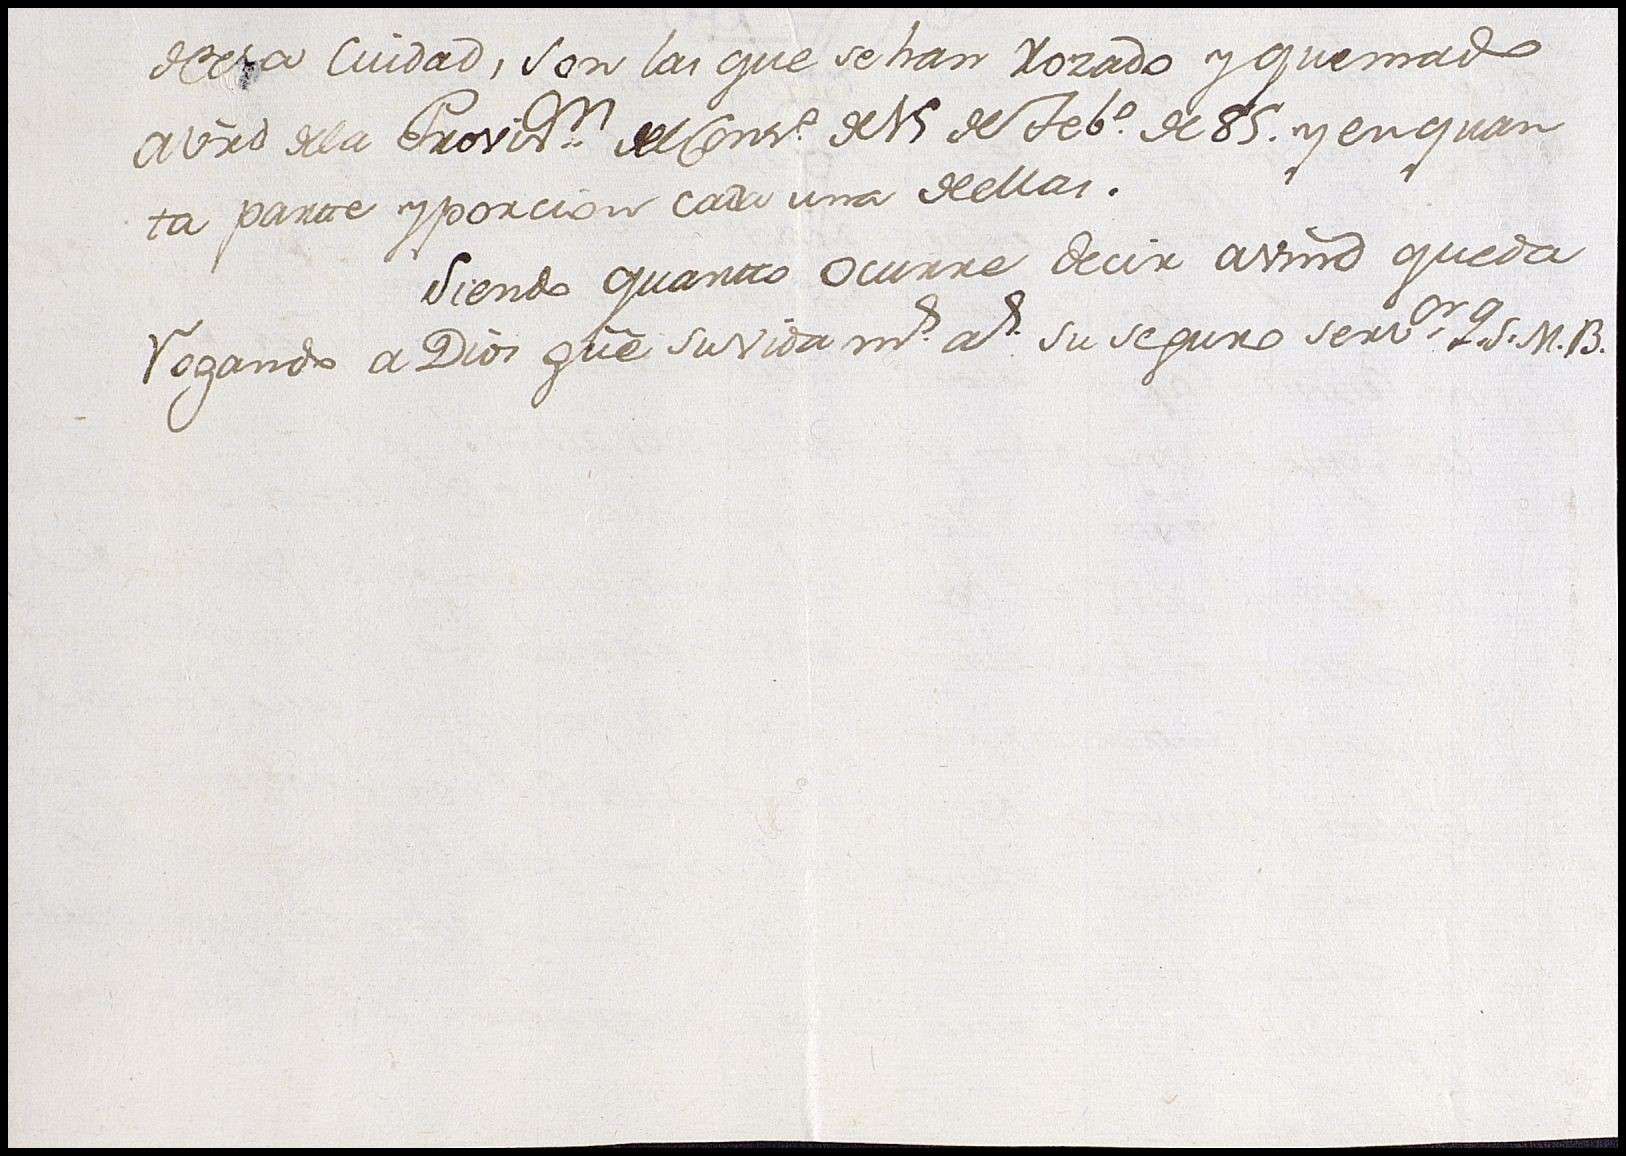 de esa Ciudad, son las que se han Rozado y quemado
a vrd dela Provis.n del Cons.o de 15 de Feb.o de 85. y en quan
ta partte y porcion cada una de ellas.
Siendo quantto ocurre decir a vmd queda
Rogando a Dios gũe su vida m.s a.s su seguro serv.or Q.S.M.B.